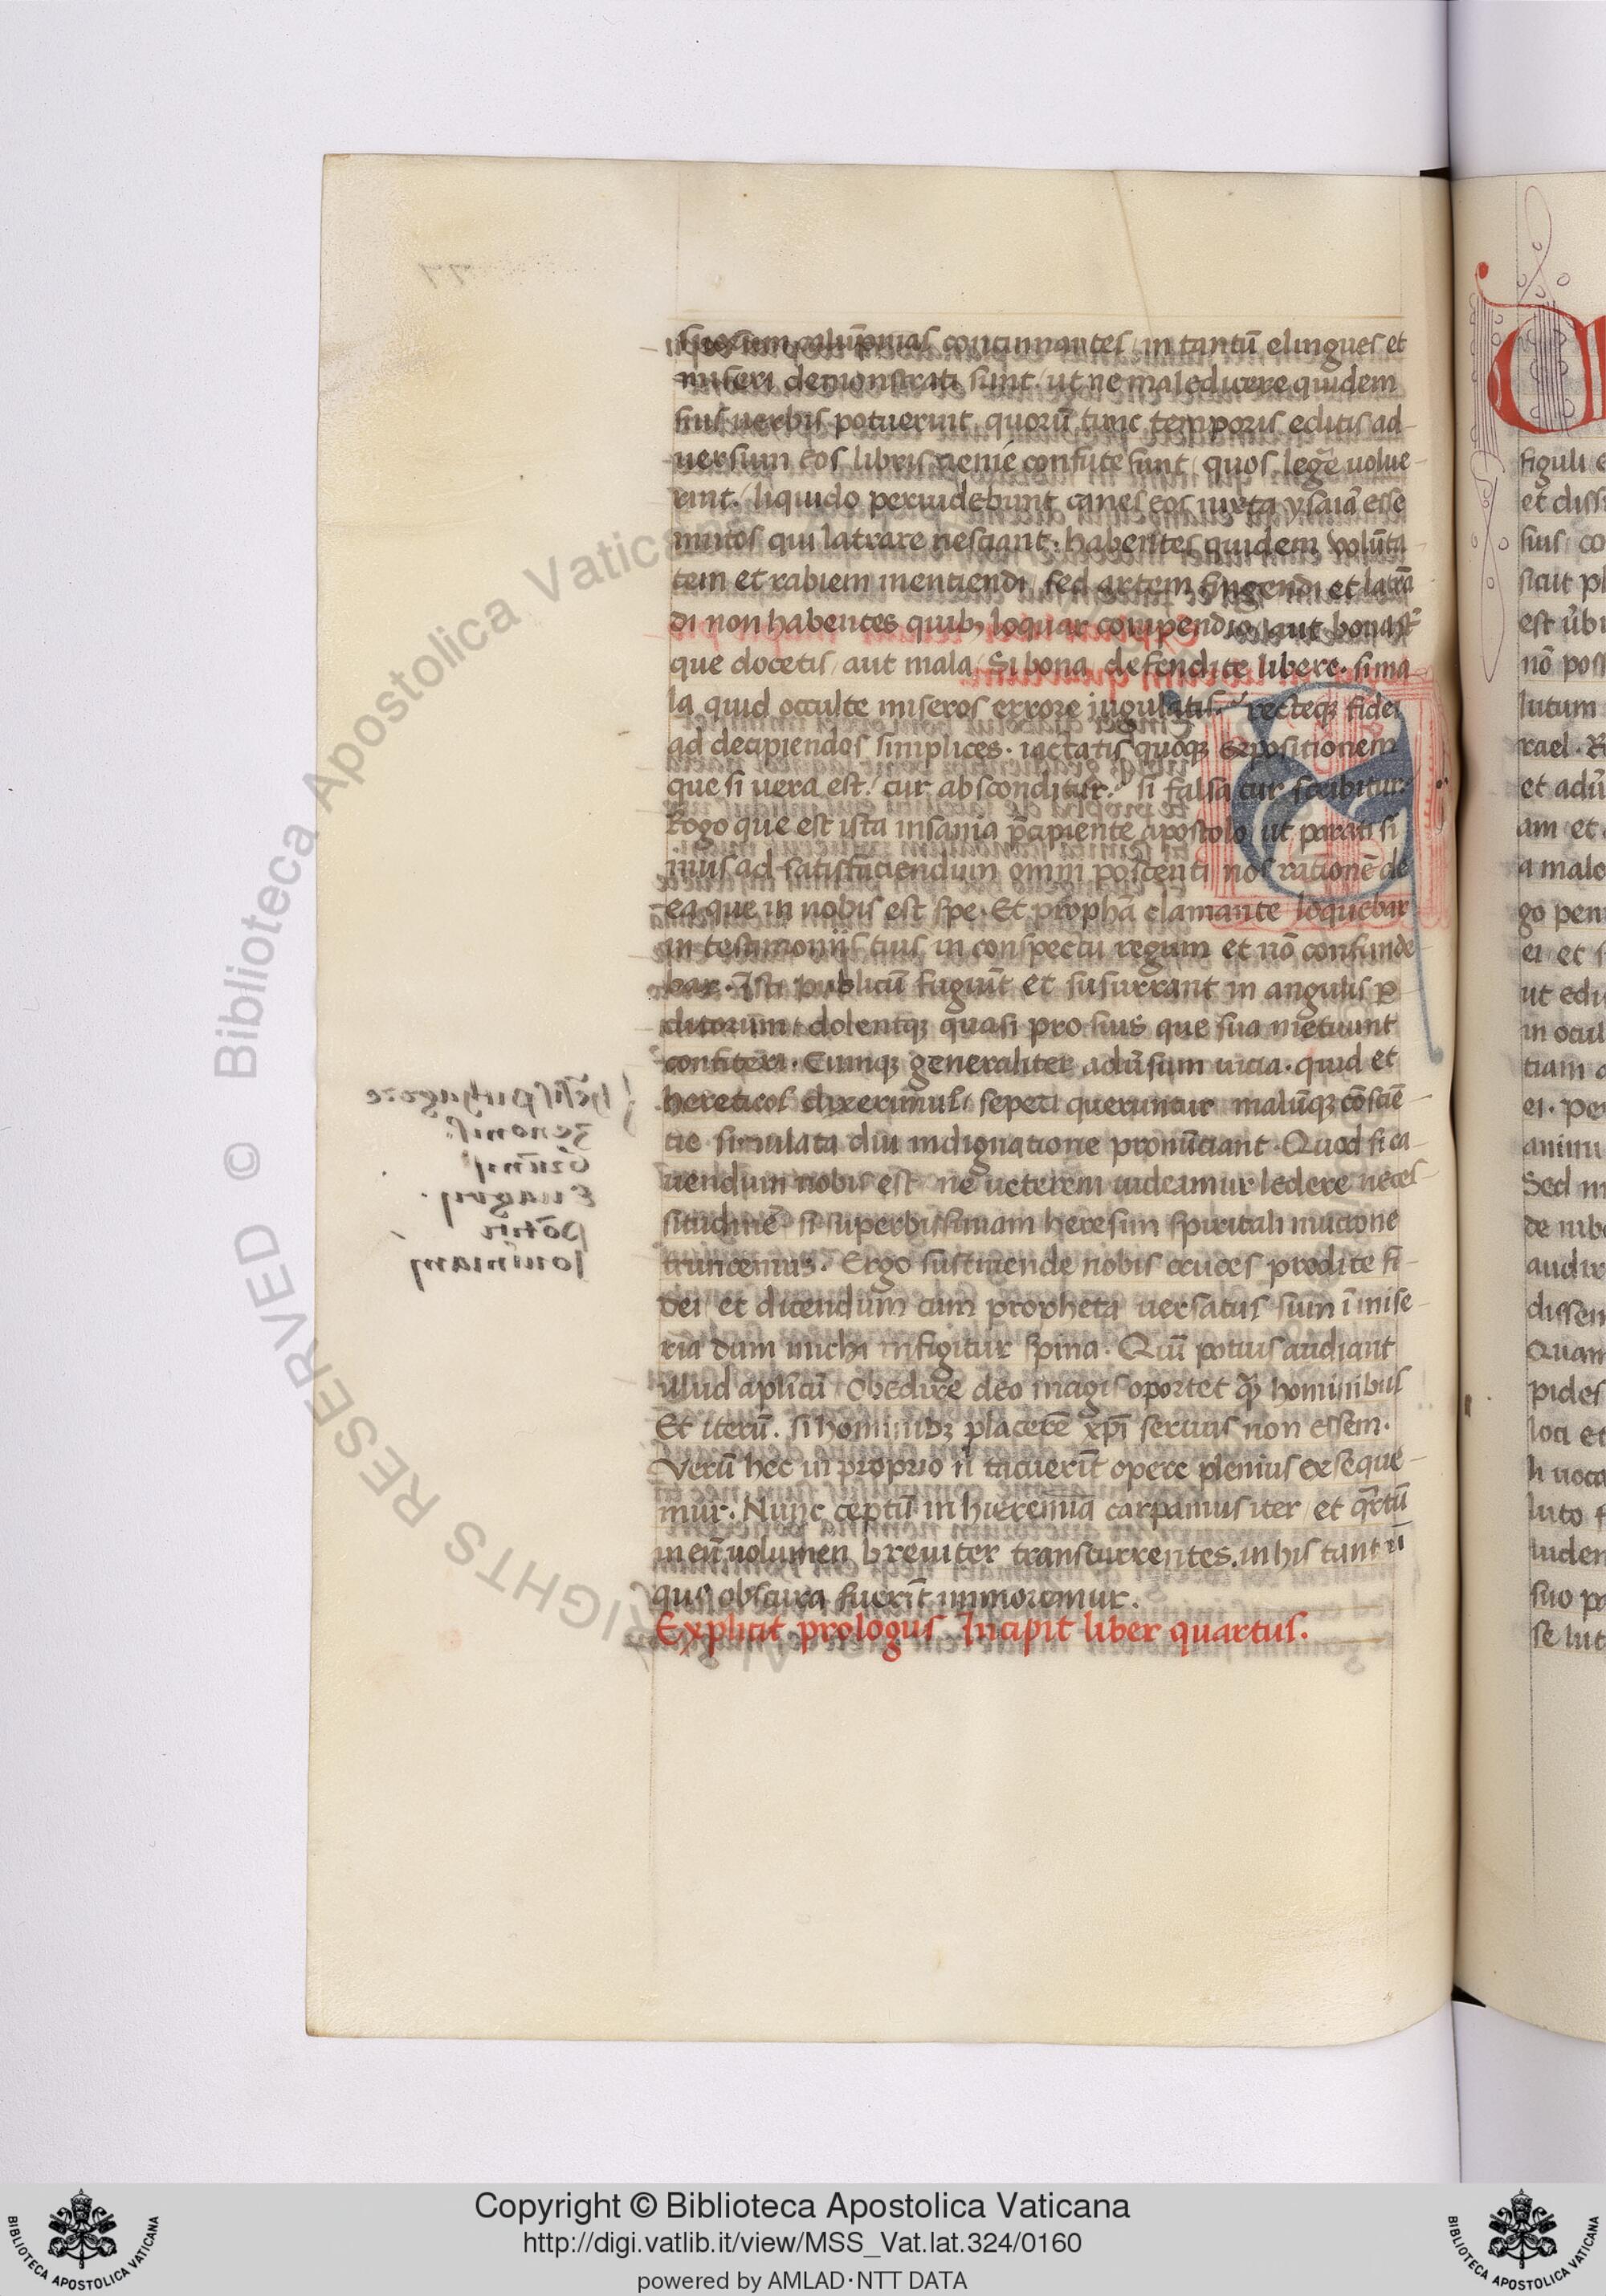 calūpnias concinnantes in tantū elingues et
miseri demonstrati sunt / ut ne maledicere quidem
suis uerbis potuerint quorū tunc temporis editis ad
uersum eos libris nenie confute sunt quos legē uolue
rint / liquido peruidebunt canes eos iuxta ysaiā esse
mutos qui latrare nesciant · habentes quidem volūta
tem et rabiem mentiendi / sed artem fingendi et latrā
di non habentes quibꝫ loquar compendio aut bona st̄
que docetis / aut mala / Si bona defendite libere · si ma
la quid occulte miseros errore iugulatis · recteqꝫ fidei
ad decipiendos simplices · iactatis quoqꝫ expositionem
que si vera est / cur absconditur · si falsa cur scribitur
Rogo que est ista insania p̄cipiente apostolo ut parati si
mus ad satisfaciendum omni poscenti nos rationē de
ea que in nobis est spe · Et prophā clamante loquebar
in testimoniis tuis in conspectu regum et nō confunde
bar · Isti publicū fugiūt et susurrant in angulis ꝑ
ditorum / dolentqꝫ quasi pro suis que sua metuunt
confiteri · Cumqꝫ generaliter adūsum uicia · quid et
hereticos dixerimus / sepeti queruntur malāqꝫ cōsciē
tie simulata diu indignatione pronūciant · Quod si ca
uendum nobis est ne ueterem uideamur ledere neces
situdinē si superbissimam heresim spiritali mucrone
truncemus · Ergo sustinende nobis cruces prodite fi
dei et dicendum cum propheta uersatus sum ī mise
ria dum michi infigitur spina · Quī potius audiant
illud aplicū Obedire deo magis oportet qꝫ hominibus
Et iterū · si hominibꝫ placerē xp̄i seruus non essem ·
Verū hec in proprio si tacuerīt opere plenius exseque
mur · Nunc ceptū in hieremiā carpamus iter / et q̄rtū
in eū uolumen breuiter transcurrentes · in his tantū
que obscura fuerīt immoremur ·
Explicit prologus · Incipit liber quartus ·
zenonis
Euagrii
Iouiniani
figuli
et diss
suis co
sicut pl
lutum
rael · R
et adū
am et
a malo
go peni
ei et
ut edi
in ocul
tiam
ei · pe
animi
Sed
de nibo
audir
dissen
Quam
pides
loci et
luto
uiden
suo po
se lut
© Biblioteca Apostolica Vaticana
ALL RIGHTS RESERVED
BIBLIOTECA APOSTOLICA VATICANA
Copyright © Biblioteca Apostolica Vaticana
http://digi.vatlib.it/view/MSS_Vat.lat.324/0160
powered by AMLAD·NTT DATA
BIBLIOTECA APOSTOLICA VATICANA